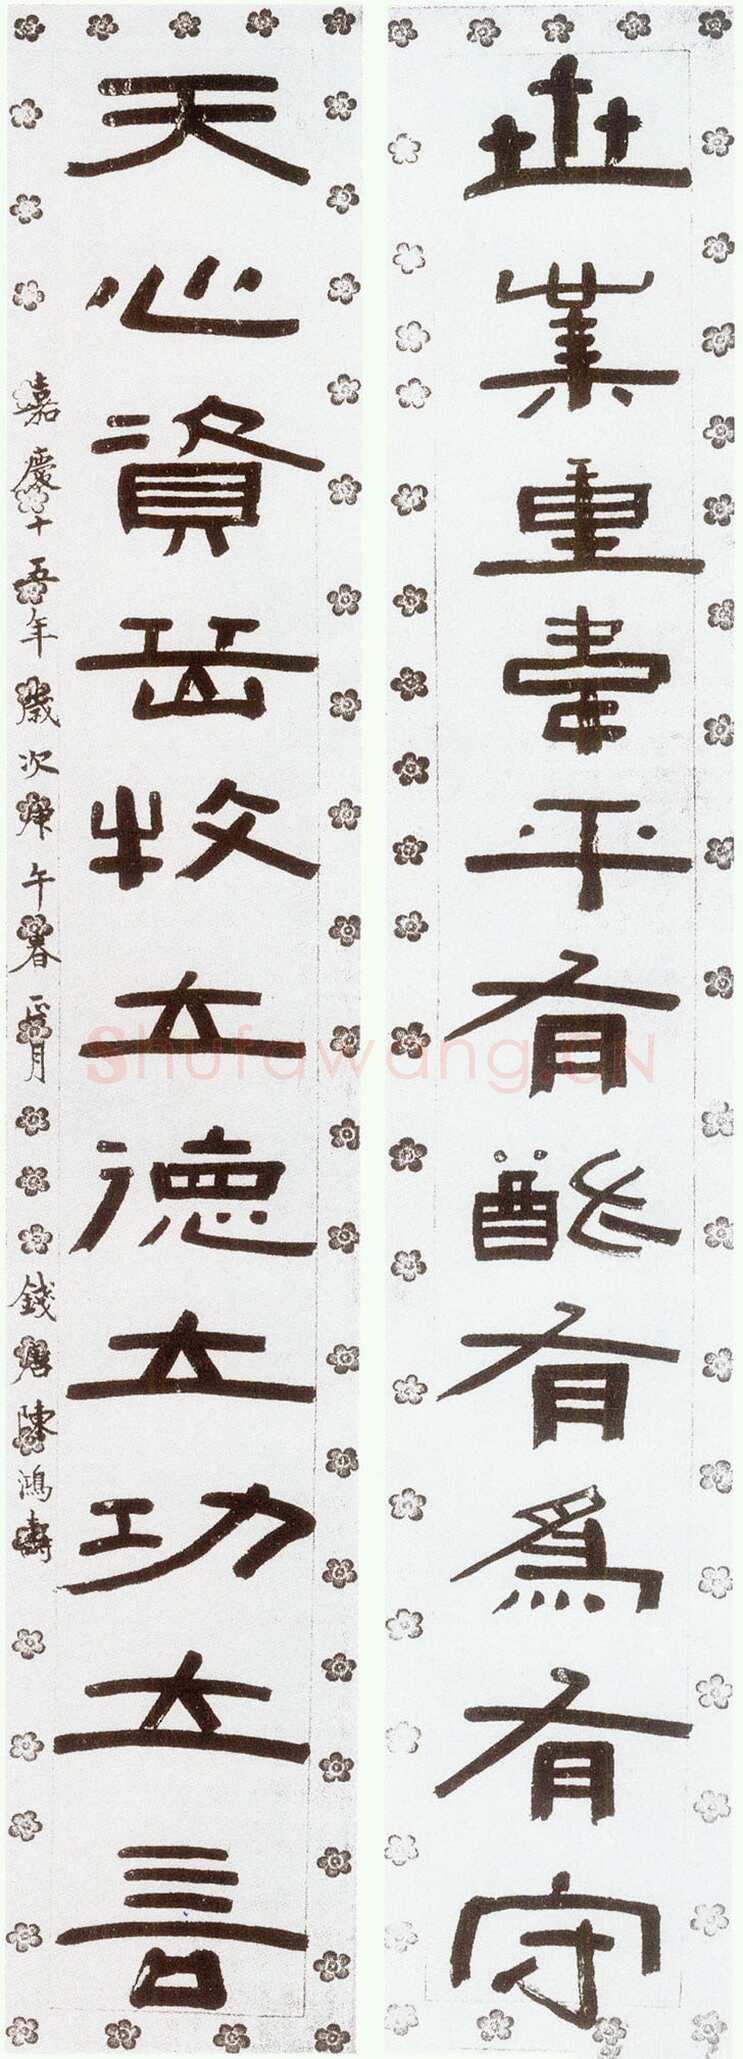 世業重韋平有猷有爲有守
天心資岳牧立德立功立言
嘉慶十五年歲次庚午春正月
錢唐陳鴻壽
Shufawang.CN